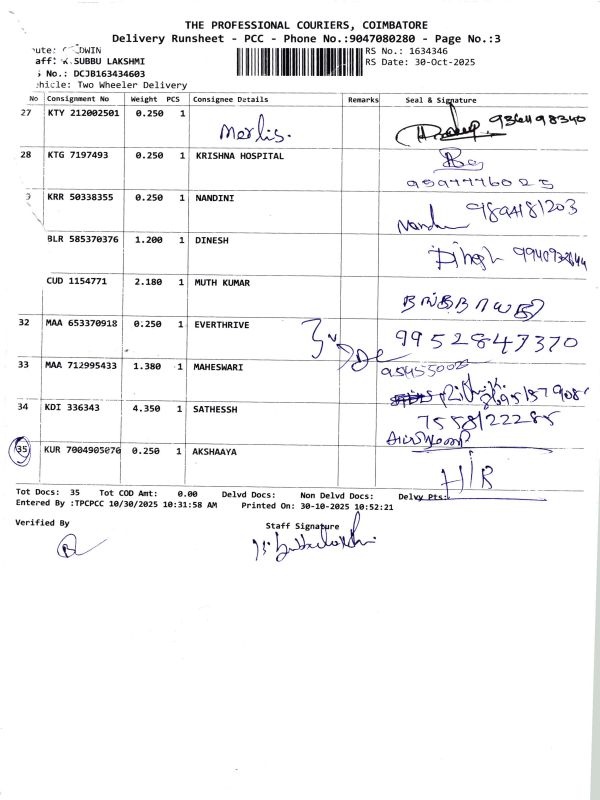 THE PROFESSIONAL COURIERS, COIMBATORE
Delivery Runsheet - PCC - Phone No.:9047080280 - Page No.:3
ute: DWIN
RS No.: 1634346
aff: K.SUBBU LAKSHMI
RS Date: 30-Oct-2025
No.: DCJB163434603
hicle: Two Wheeler Delivery
No Consignment No Weight PCS Consignee Details Remarks Seal & Signature
27 KTY 212002501 0.250 1 Merlis. 9364198340
28 KTG 7197493 0.250 1 KRISHNA HOSPITAL
9597776025
9 KRR 50338355 0.250 1 NANDINI 9894181203
BLR 585370376 1.200 1 DINESH
CUD 1154771 2.180 1 MUTH KUMAR
32 MAA 653370918 0.250 1 EVERTHRIVE 9952847370
33 MAA 712995433 1.380 1 MAHESWARI
34 KDI 336343 4.350 1 SATHESSH 7558122285
35 KUR 7004905070 0.250 1 AKSHAAYA H/R
Tot Docs: 35 Tot COD Amt: 0.00 Delvd Docs: Non Delvd Docs: Delvy Pts:
Entered By :TPCPCC 10/30/2025 10:31:58 AM Printed On: 30-10-2025 10:52:21
Verified By Staff Signature